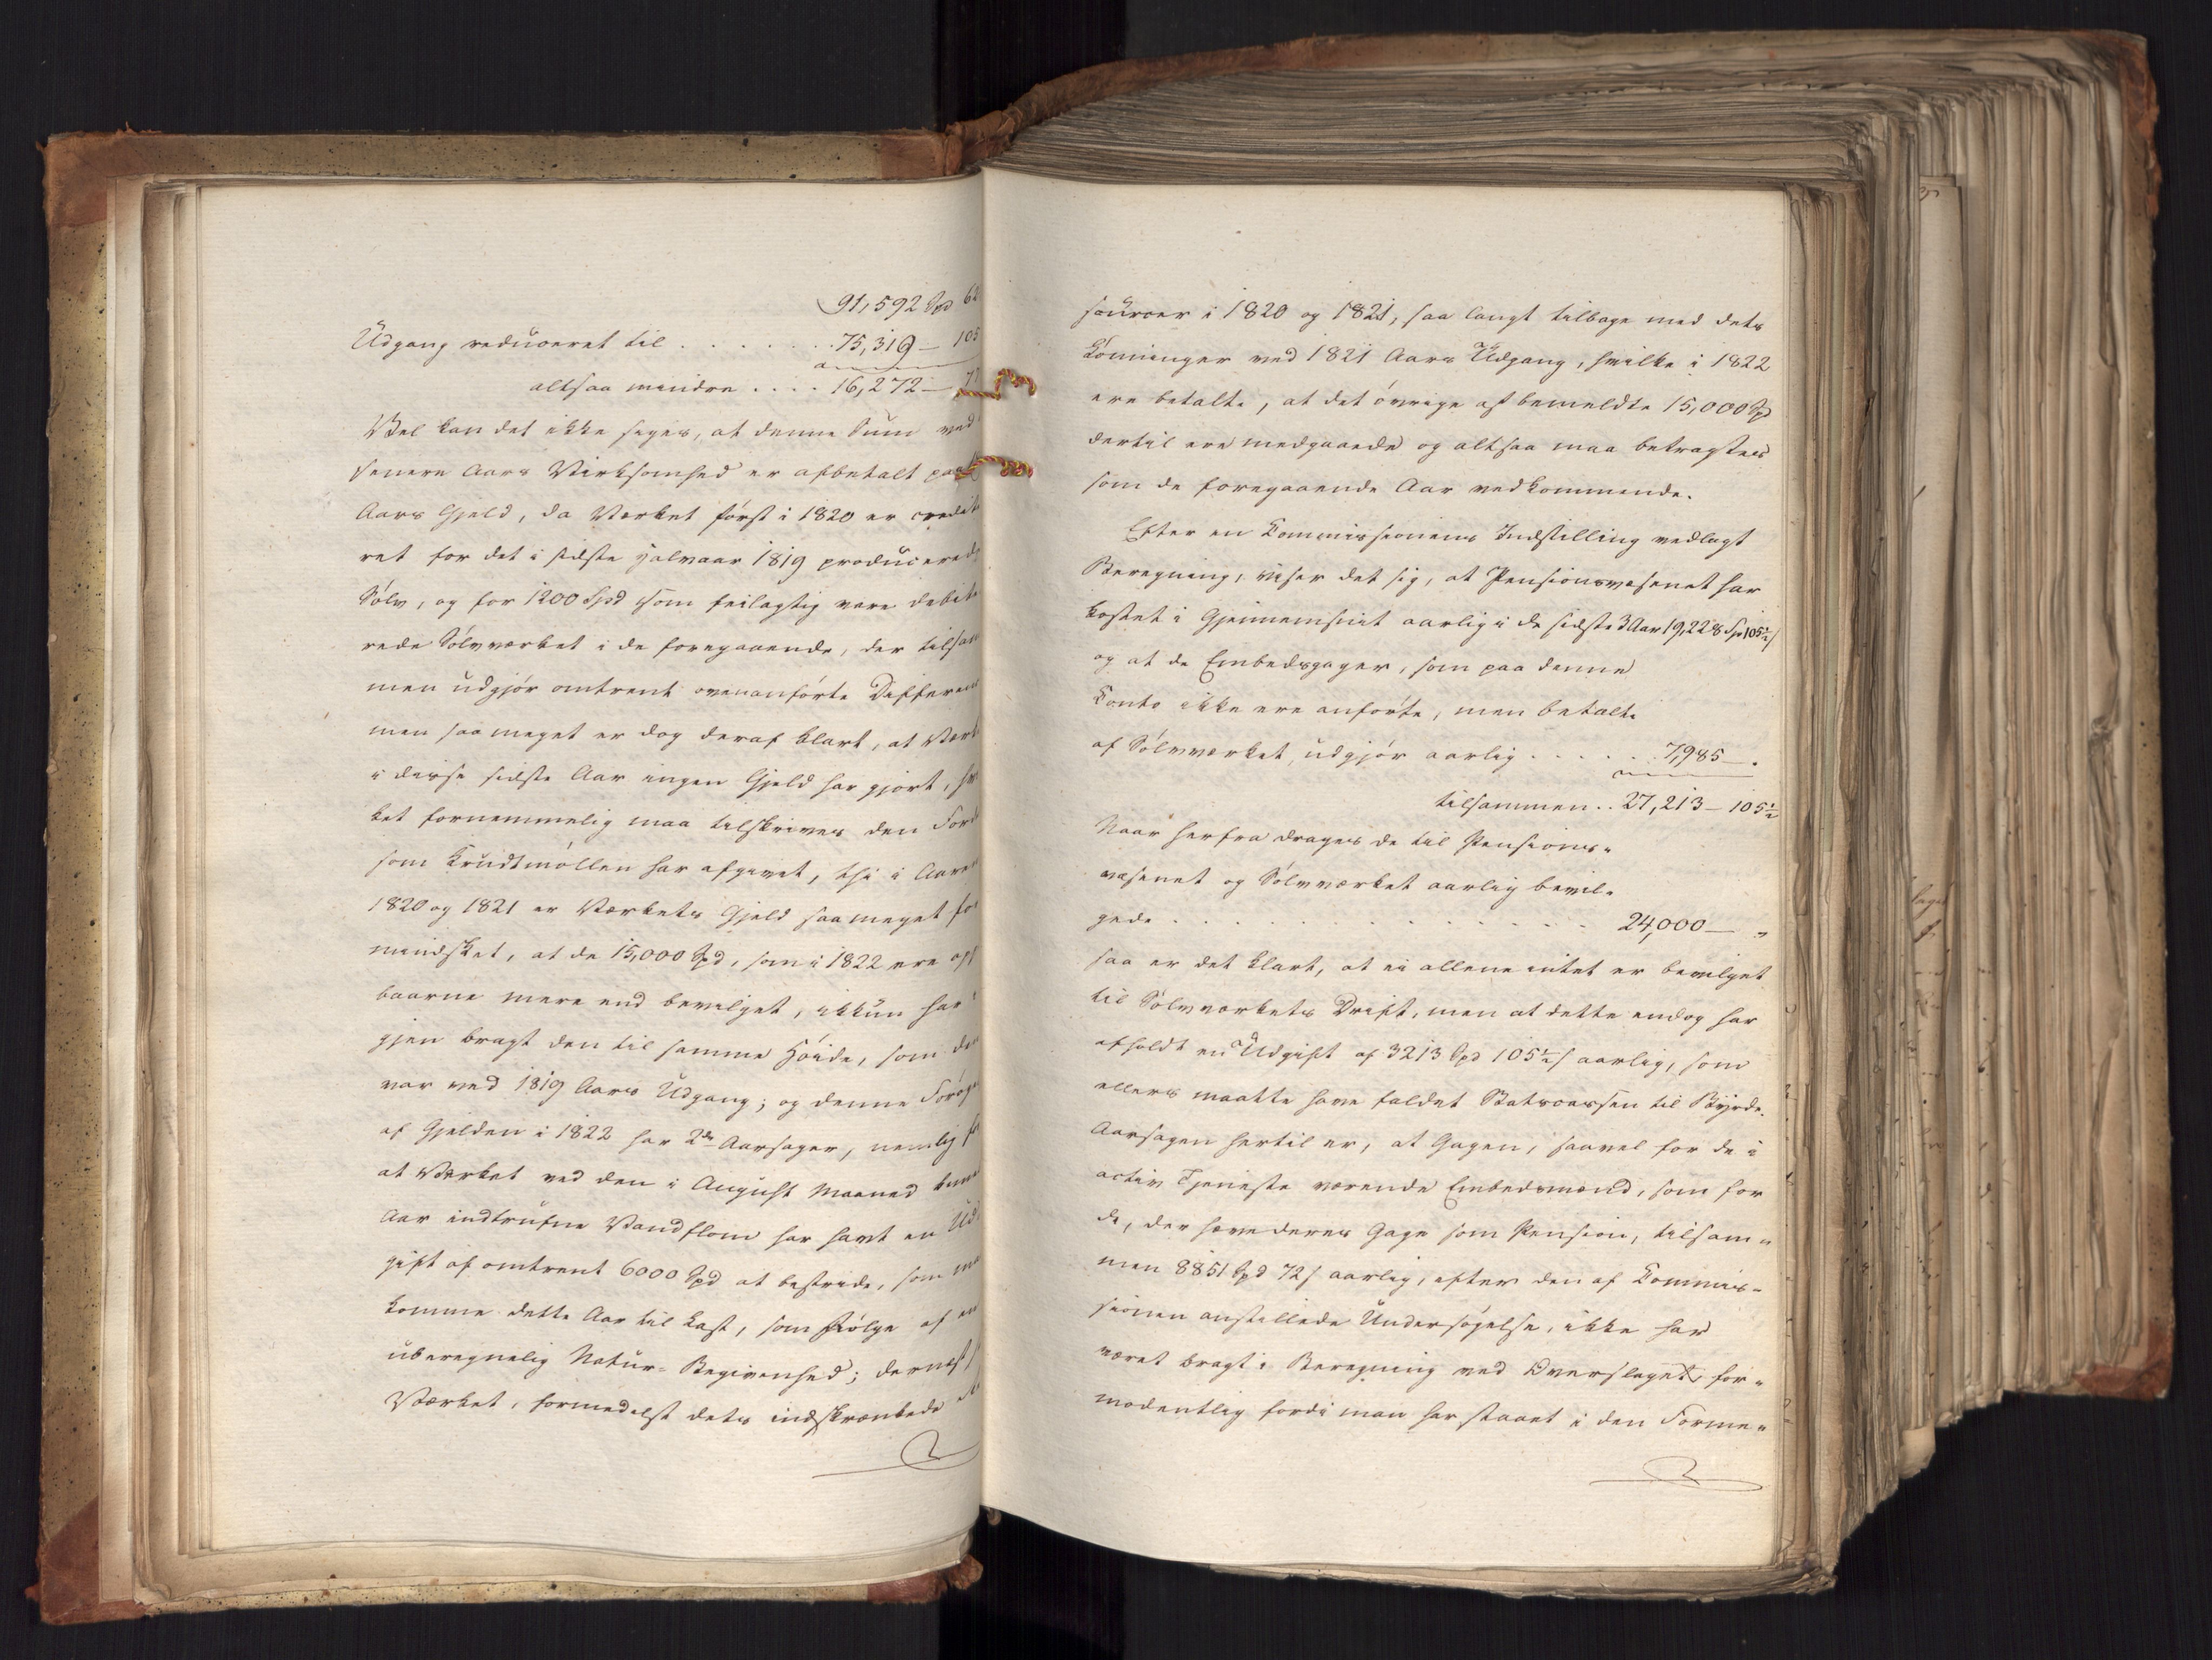 91,592 Spd 62
Udgang reduceret til . . . . . . . . 75,319 — 105
altsaa mindre . . . . 16,272 — 77
Vel kan det ikke siges, at denne Sum ved
senere Aars Virksomhed er afbetalt paa
Aars Gjeld, da Værket først i 1820 er credite
ret for det i sidste Halvaar 1819 producerede
Sølv, og for 1200 Spd som feilagtig vare debite
rede Sølvværket i de foregaaende, der tilsam
men udgjør omtrent ovenanførte Differen
men saa meget er dog deraf klart, at Værk
i disse sidste Aar ingen Gjeld har gjort, hvi
ket fornemmelig maa tilskrives den Forde
som Krudtmøllen har afgivet, thi i Aarene
1820 og 1821 er Værkets Gjeld saa meget for
mindsket, at de 15,000 Spd, som i 1822 ere op
baarne mere end bevilget, ikkun har i
gjen bragt den til samme Høide, som den
var ved 1819 Aars Udgang; og denne Forøg
af Gjelden i 1822 har 2de Aarsager, nemlig fø
at Værket ved den i August Maaned
Aar indtrufne Vandflom har havt en Ud
gift af omtrent 6000 Spd at bestride, som maa
komme dette Aar til Last, som Følge af en
uberegnelig Natur-Begivenhed; dernæst
Værket, formedelst dets indskrænkede
sourcer i 1820 og 1821, saa langt tilbage med dets
Lønninger ved 1821 Aars Udgang, hvilke i 1822
ere betalte, at det øvrige af bemeldte 15,000 Spd
dertil ere medgaaede og altsaa maa betragtes
som de foregaaende Aar vedkommende.
Efter en Commissionens Indstilling vedlagt
Beregning, viser det sig, at Pensionsvæsenet har
kostet i Gjennemsnit aarlig i de sidste 3 Aar 19,228 Sp 105½ s
og at de Embedsgager, som paa denne
Conto ikke ere anførte, men betalte
af Sølvværket, udgjør aarlig . . . . . . 7,985 — .
tilsammen . . 27,213 — 105½
Naar herfra drages de til Pensions-
væsenet og Sølvværket aarlig bevil-
gede . . . . . . . . . . . . . . 24,000 — "
saa er det klart, at ei allene intet er bevilget
til Sølvværkets Drift, men at dette endog har
afholdt en Udgift af 3213 Spd 105½ s aarlig, som
ellers maatte have faldet Statscassen til Byrde.
Aarsagen hertil er, at Gagen, saavel for de i
activ Tjeneste værende Embedsmænd, som for
de, der hæve deres Gage som Pension, tilsam-
men 8851 Spd 72 s aarlig, efter den af Commis-
sionen anstillede Undersøgelse, ikke har
været bragt i Beregning ved Overslaget, for-
modentlig fordi man har staaet i den Forme-